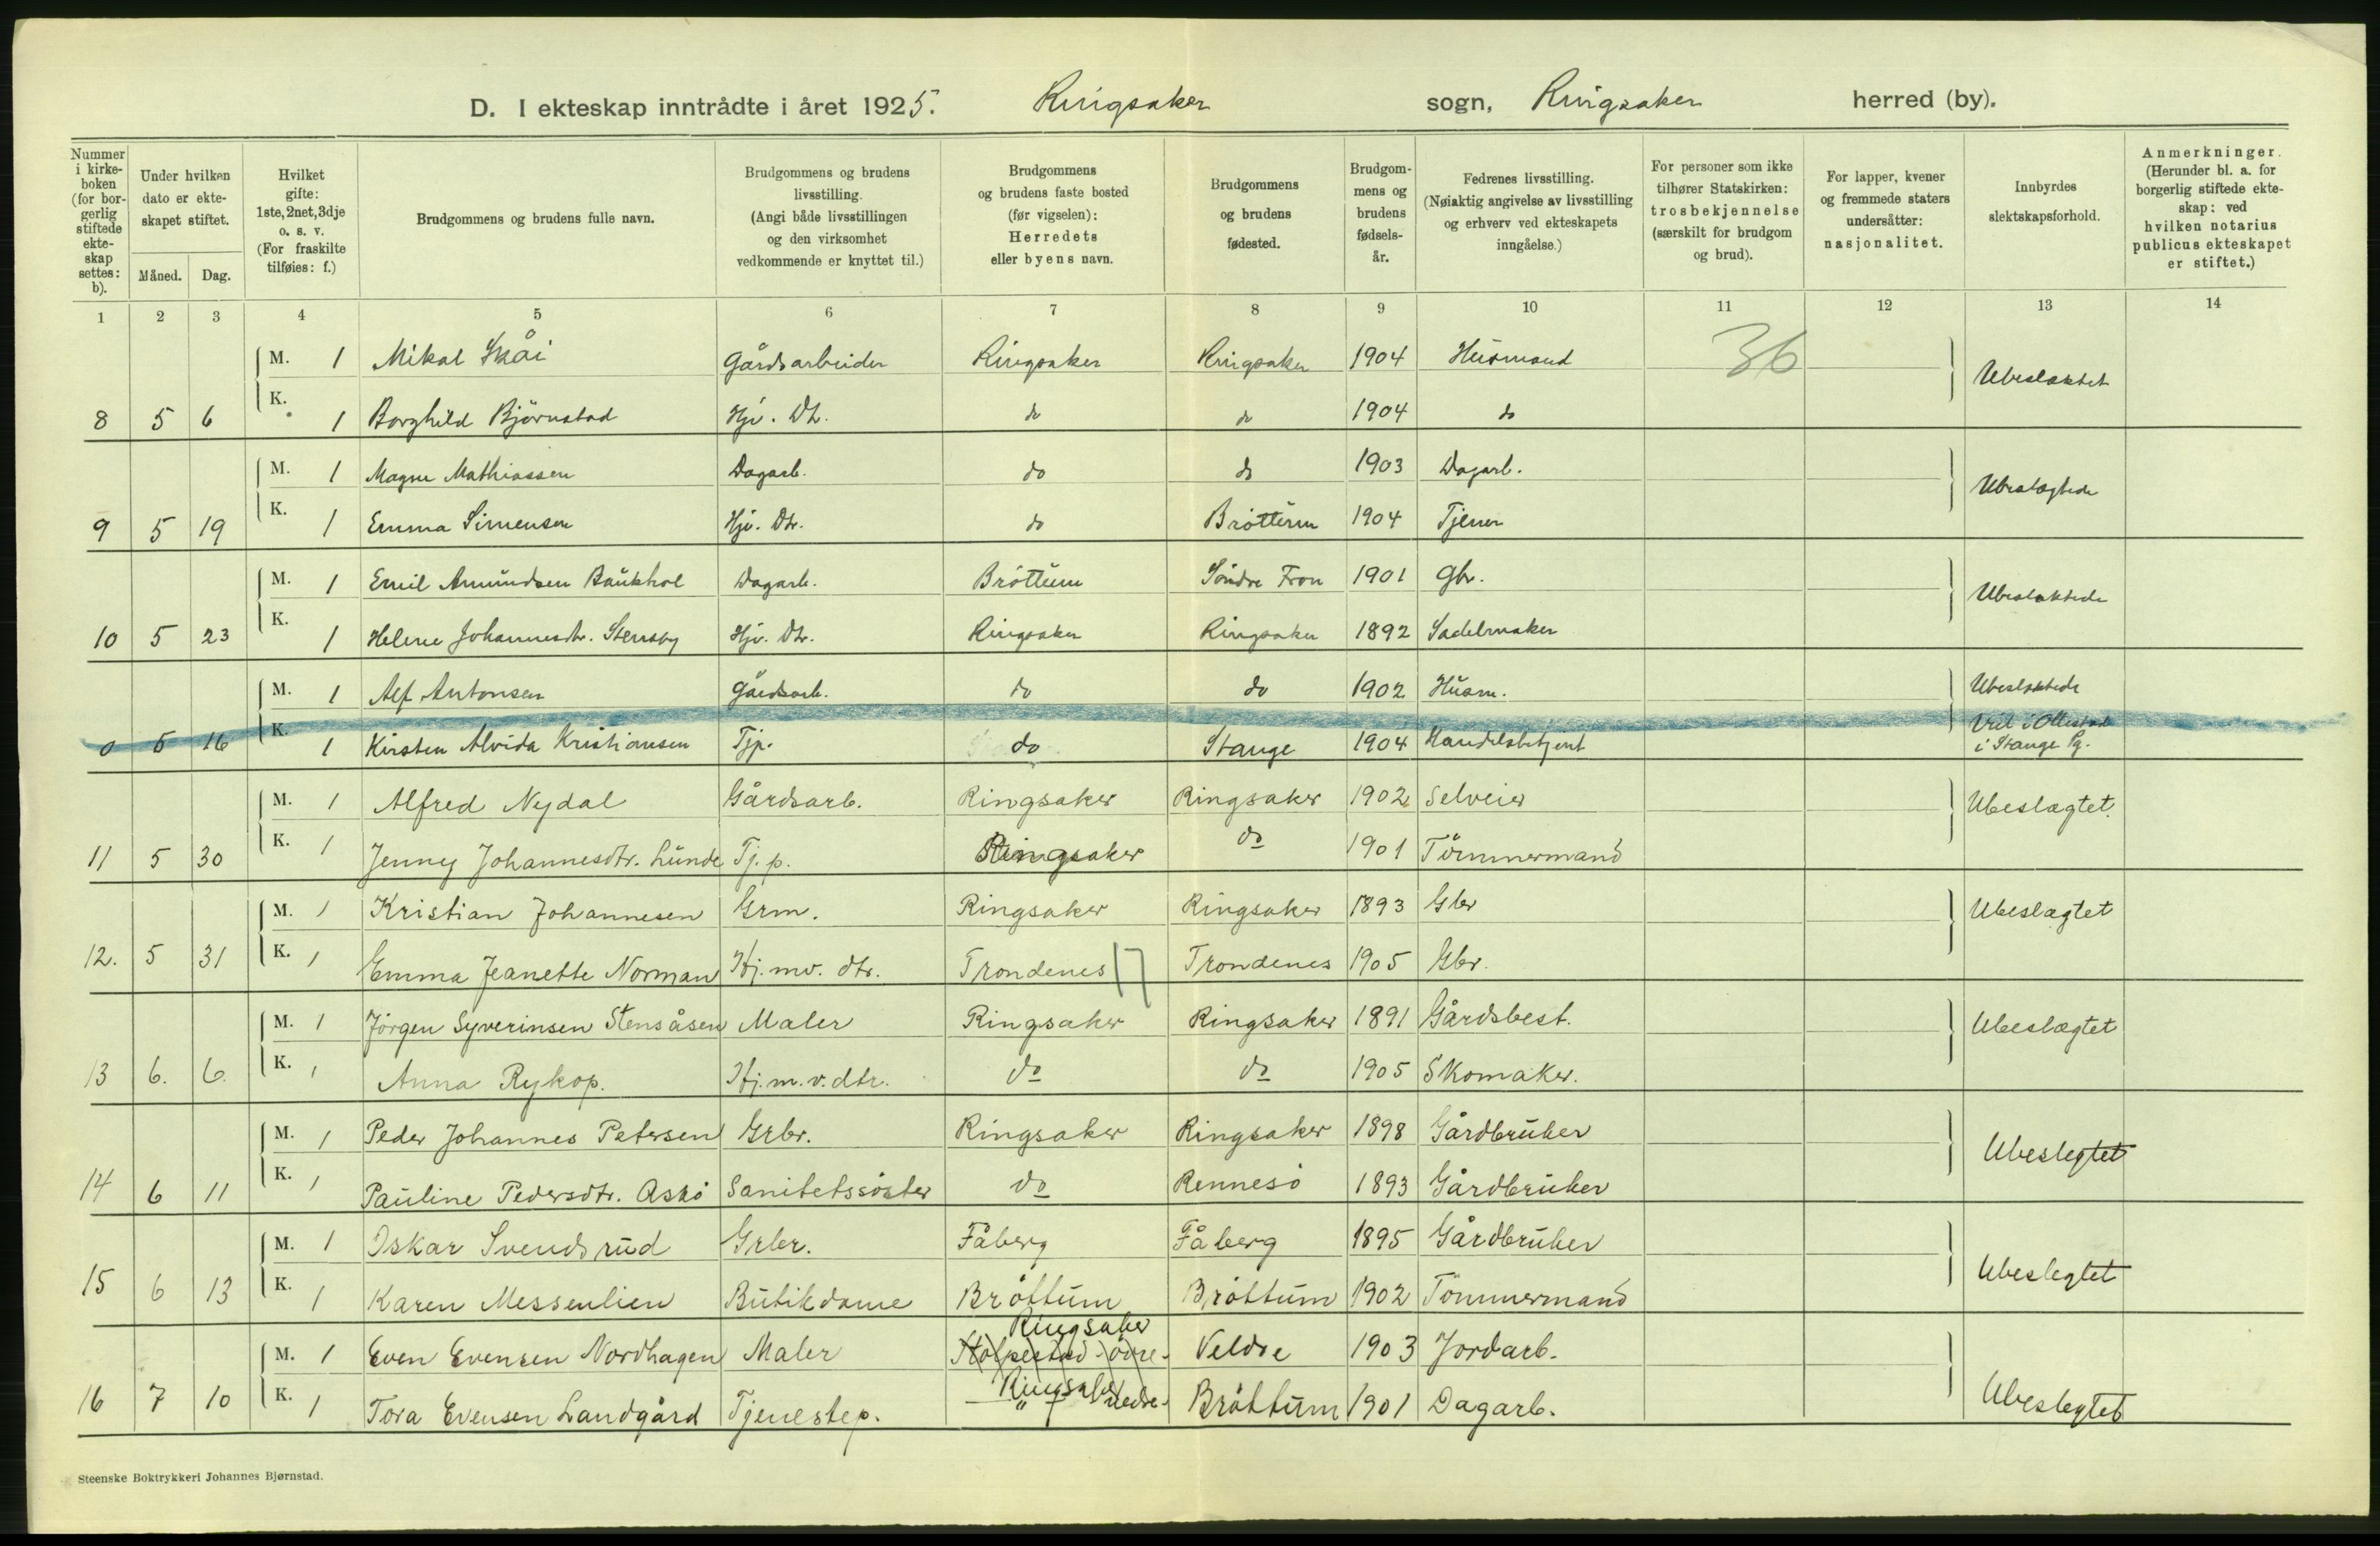 D. I ekteskap inntrådte i året 1925. Ringsaker sogn, Ringsaker herred (by).
Nummer i kirke-boken (for bor-gerlig stiftede ekte-skap settes: b).
Under hvilken dato er ekte-skapet stiftet.
Måned. Dag.
Hvilket gifte: 1ste, 2net, 3dje o. s. v. (For fraskilte tilføies: f.)
Brudgommens og brudens fulle navn.
Brudgommens og brudens livsstilling. (Angi både livsstillingen og den virksomhet vedkommende er knyttet til.)
Brudgommens og brudens faste bosted (før vigselen): Herredets eller byens navn.
Brudgommens og brudens fødested.
Brudgom-mens og brudens fødsels-år.
Fedrenes livsstilling. (Nøiaktig angivelse av livsstilling og erhverv ved ekteskapets inngåelse.)
For personer som ikke tilhører Statskirken: trosbekjennelse (særskilt for brudgom og brud).
For lapper, kvener og fremmede staters undersåtter: nasjonalitet.
Innbyrdes slektskapsforhold.
Anmerkninger. (Herunder bl. a. for borgerlig stiftede ekte-skap: ved hvilken notarius publicus ekteskapet er stiftet.)
1 2 3 4 5 6 7 8 9 10 11 12 13 14
M. 1 Mikal Skåi Gårdsarbeider Ringsaker Ringsaker 1904 Husmand 36 Ubeslektet
8 5 6 K. 1 Borghild Björnstad Hjv. Dt. do do 1904 do
M. 1 Magne Mathiassen Dagarb. do do 1903 Dagarb. Ubeslægtede
9 5 19 K. 1 Emma Simensen Hjv. Dtr. do Bröttum 1904 Tjener
M. 1 Emil Amundsen Baukhol Dagarb. Bröttum Söndre Fron 1901 Gbr. Ubeslektede
10 5 23 K. 1 Helene Johannesdtr. Stensby Hjv. Dtr. Ringsaker Ringsaker 1892 Sadelmaker
M. 1 Alf Antonsen Gårdsarb. do do 1902 Husm. Ubeslektede
0 5 16 K. 1 Kirsten Alvida Kristiansen Tjp. do Stange 1904 Handelsbetjent Viet i Ottestad
i Stange Pg.
M. 1 Alfred Nydal Gårdsarb. Ringsaker Ringsaker 1902 Selveier Ubeslægtet.
11 5 30 K. 1 Jenny Johannesdtr. Lunde Tj. p. Ringsaker do 1901 Tömmermand
M. 1 Kristian Johannesen Grm. Ringsaker Ringsaker 1893 Gbr Ubeslægtet
12. 5 31 K. 1 Emma Jeanette Norman Hj. mv. dtr. Trondenes Trondenes 1905 Gbr.
M. 1 Jörgen Syverinsen Stensåsen Maler Ringsaker Ringsaker 1891 Gårdsbest. Ubeslægtet
13 6. 6. K. 1 Anna Rykop. Hj. m. v. dtr. do do 1905 Skomaker.
M. 1 Peder Johannes Petersen Grbr. Ringsaker Ringsaker 1898 Gårdbruker Ubeslegtet
14 6 11 K. 1 Pauline Pedersdtr. Askö Sanitetssöster do Rennesö 1893 Gårdbruker
M. 1 Oskar Svendsrud Grbr. Fåberg Fåberg 1895 Gårdbruker Ubeslegtet
15 6 13 K. 1 Karen Messenlien Butikdame Bröttum Bröttum 1902 Tömmermand
Ringsaker
M. 1 Even Evensen Nordhagen Maler Stolpestad övre Veldre 1903 Jordarb. Ubeslegtet
16 7 10 K. 1 Tora Evensen Landgård Tjenestep. Ringsaker " nedre Bröttum 1901 Dagarb.
Steenske Boktrykkeri Johannes Bjørnstad.